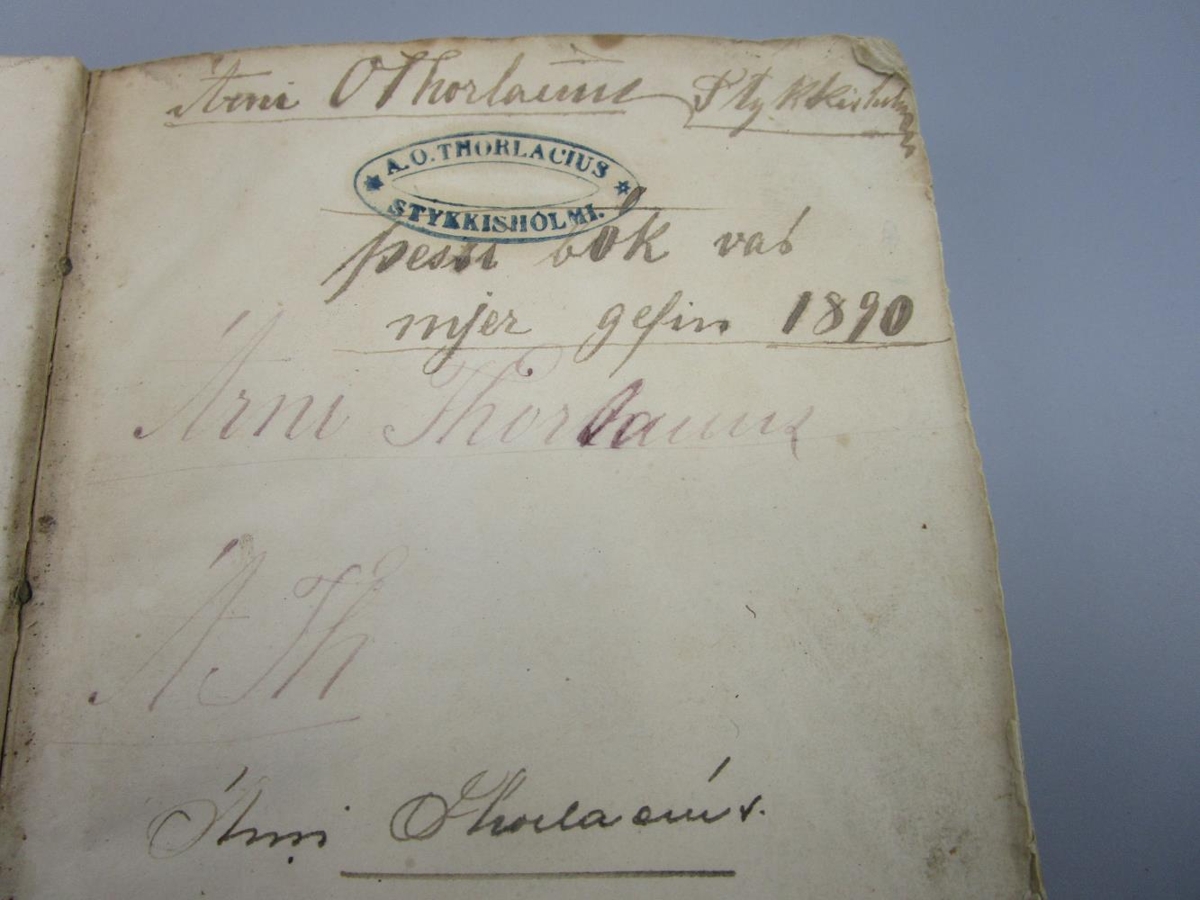 Árni O Thorlacius Stykkishólmi
A.O. THORLACIUS
STYKKISHÓLMI.
þessi bók var
mjer gefin 1890
Árni Thorlacius
Á Th
Árni Thorlacíus.